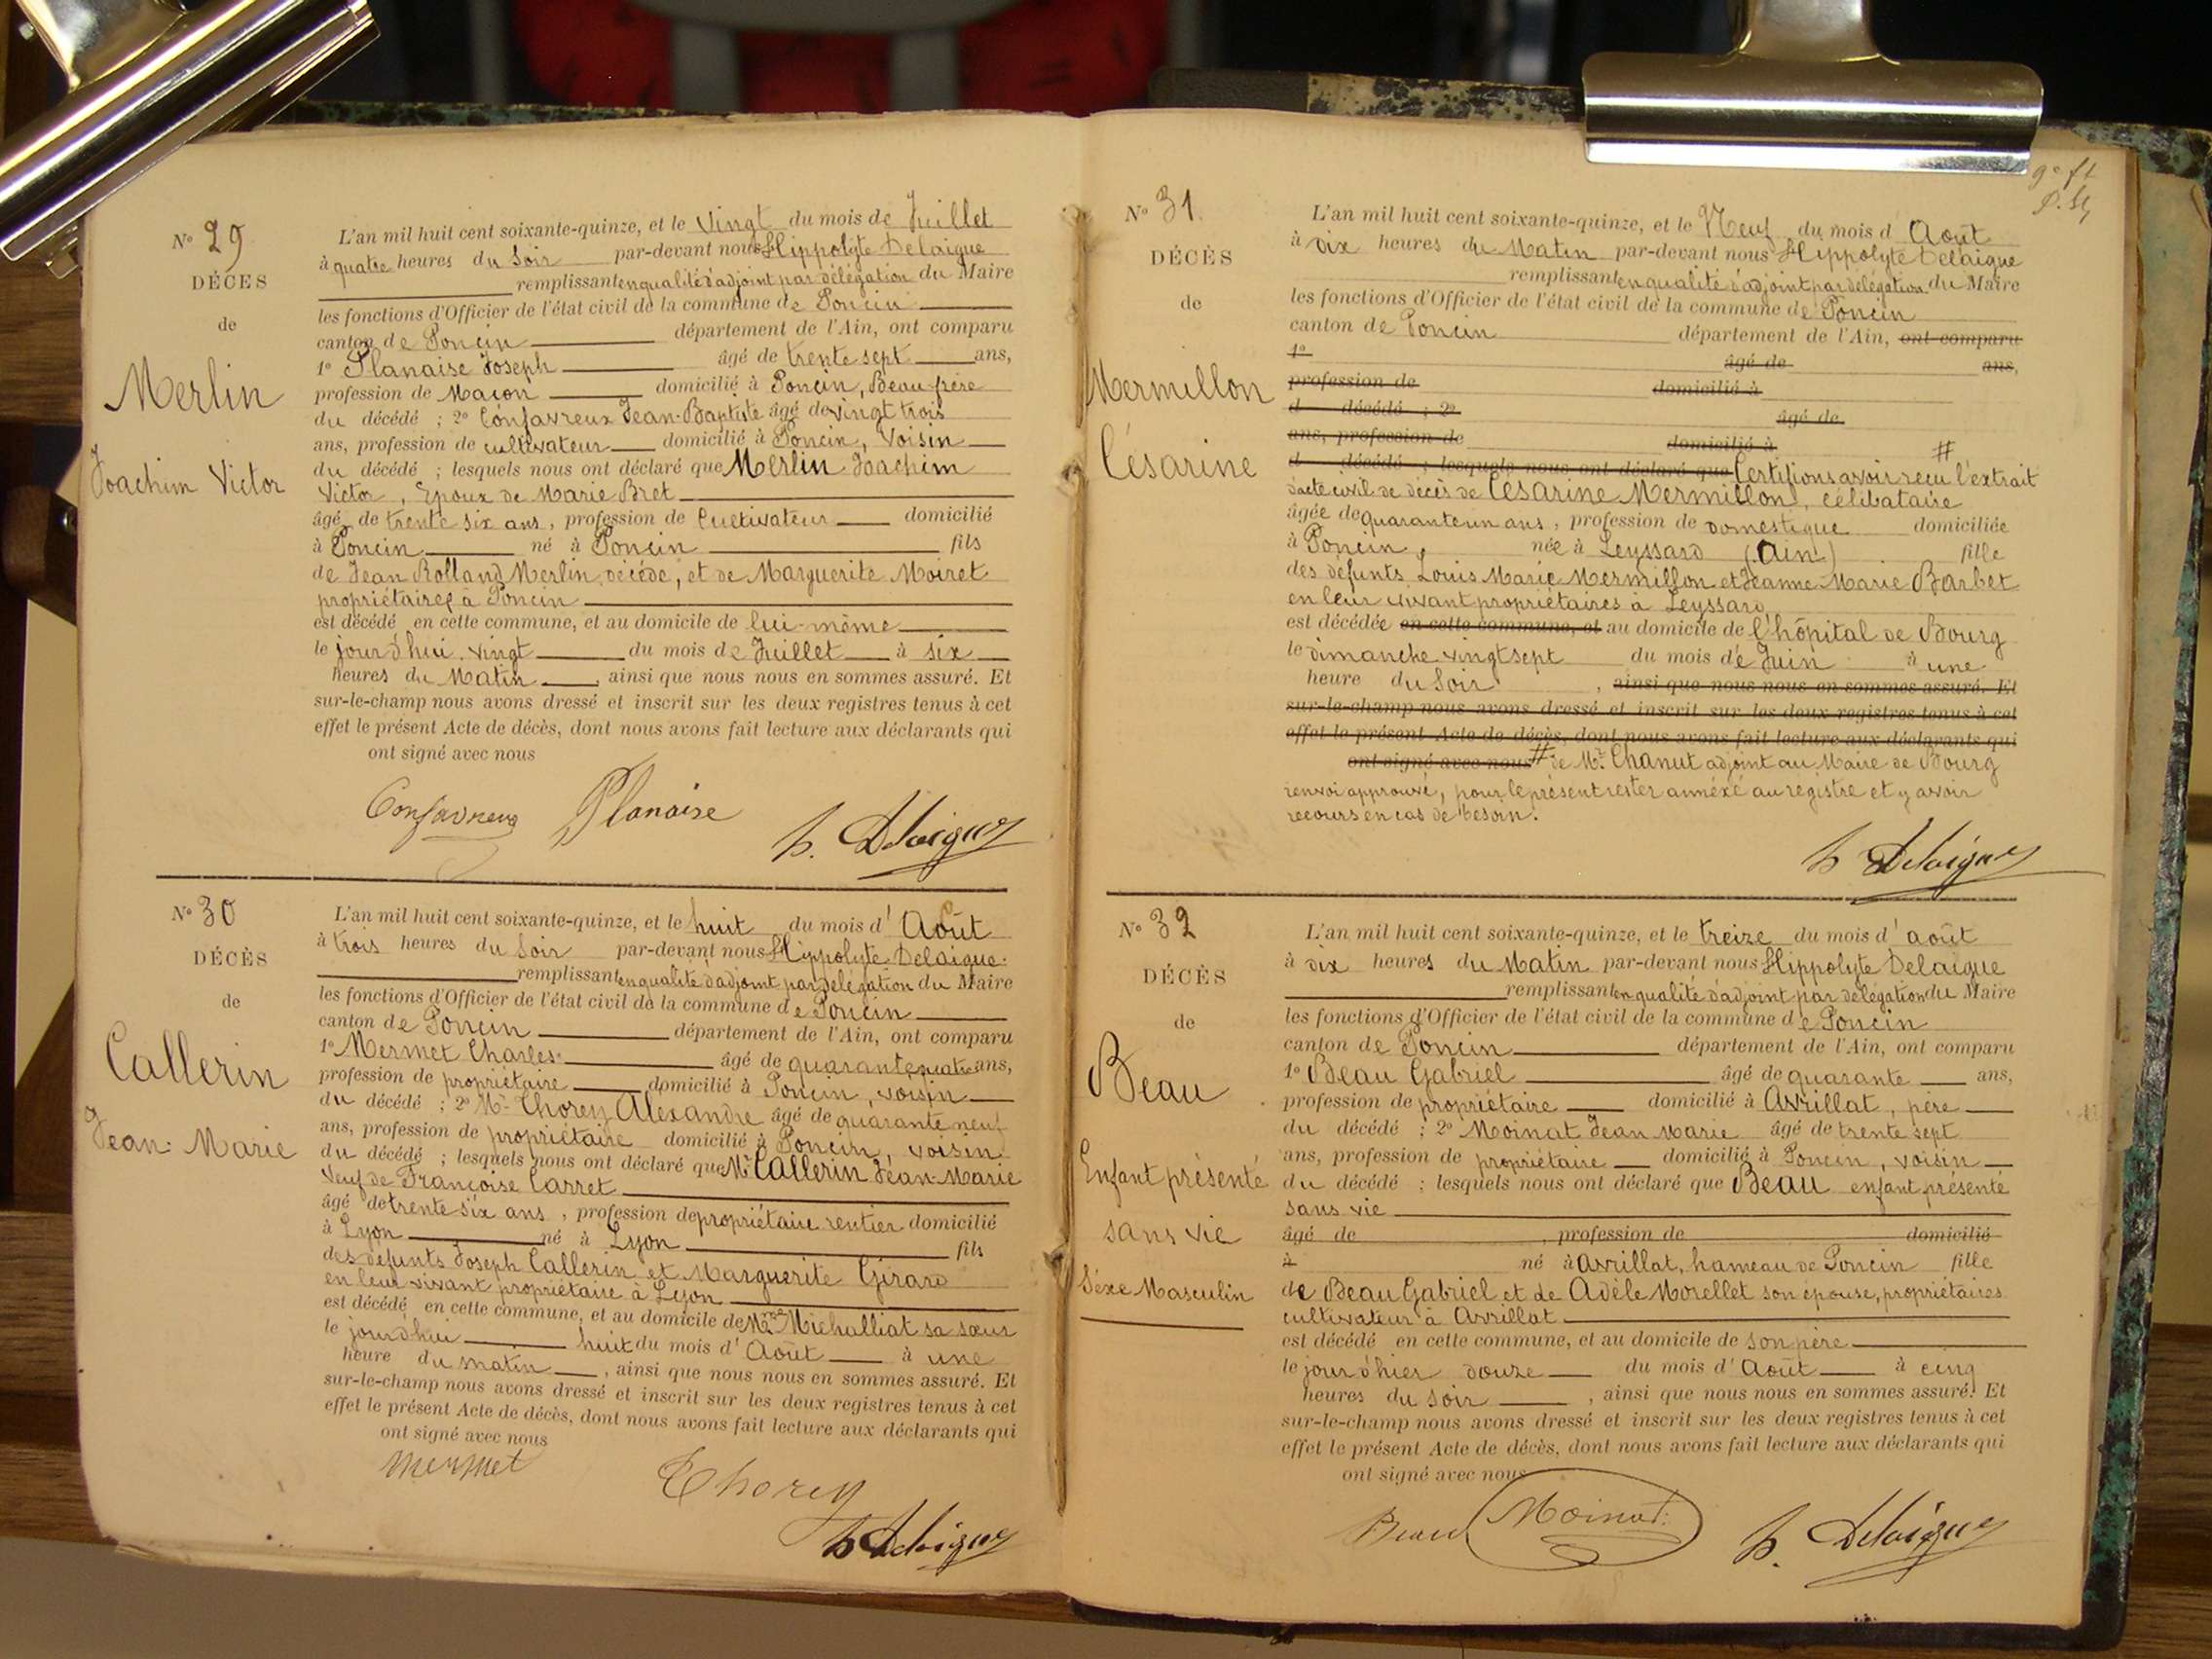 N° 29
DÉCÈS
de
Merlin
Joachim Victor
L'an mil huit cent soixante-quinze, et le Vingt du mois de Juillet
à quatre heures du Soir par-devant nous Hippolyte Delaigue
remplissant en qualité d'adjoint par délégation du Maire
les fonctions d'Officier de l'état civil de la commune de Poncin
canton de Poncin département de l'Ain, ont comparu
1° Planaise Joseph âgé de trente sept ans,
profession de Maçon domicilié à Poncin, Beau-frère
du décédé ; 2° Confavreux Jean-Baptiste âgé de vingt trois
ans, profession de cultivateur domicilié à Poncin, Voisin
du décédé ; lesquels nous ont déclaré que Merlin Joachim
Victor, Epoux de Marie Bret
âgé de trente six ans, profession de Cultivateur domicilié
à Poncin né à Poncin fils
de Jean Rolland Merlin, décédé, et de Marguerite Moiret
propriétaires à Poncin
est décédé en cette commune, et au domicile de lui-même
le jourd'hui vingt du mois de Juillet à six
heures du Matin, ainsi que nous nous en sommes assuré. Et
sur-le-champ nous avons dressé et inscrit sur les deux registres tenus à cet
effet le présent Acte de décès, dont nous avons fait lecture aux déclarants qui
ont signé avec nous
Confavreux Planaise h. Delaigue
N° 30
DÉCÈS
de
Callerin
Jean-Marie
L'an mil huit cent soixante-quinze, et le huit du mois d'Août
à trois heures du Soir par-devant nous Hippolyte Delaigue
remplissant en qualité d'adjoint par délégation du Maire
les fonctions d'Officier de l'état civil de la commune de Poncin
canton de Poncin département de l'Ain, ont comparu
1° Mermet Charles âgé de quarante quatre ans,
profession de propriétaire domicilié à Poncin, voisin
du décédé ; 2° Mr Thorey Alexandre âgé de quarante neuf
ans, profession de propriétaire domicilié à Poncin, voisin
du décédé ; lesquels nous ont déclaré que Mr Callerin Jean-Marie
Veuf de Françoise Carret
âgé de trente six ans, profession de propriétaire rentier domicilié
à Lyon né à Lyon fils
des défunts Joseph Callerin et Marguerite Girard
en leur vivant propriétaire à Lyon
est décédé en cette commune, et au domicile de Mme Michalliat sa sœur
le jourd'hui huit du mois d'Août à une
heure du matin, ainsi que nous nous en sommes assuré. Et
sur-le-champ nous avons dressé et inscrit sur les deux registres tenus à cet
effet le présent Acte de décès, dont nous avons fait lecture aux déclarants qui
ont signé avec nous
Mermet Thorey h Delaigue
N° 31
DÉCÈS
de
Mermillon
Césarine
L'an mil huit cent soixante-quinze, et le Neuf du mois d Août
à dix heures du Matin par-devant nous Hippolyte Delaigue
remplissant en qualité d'adjoint par délégation du Maire
les fonctions d'Officier de l'état civil de la commune de Poncin
canton de Poncin département de l'Ain, ont comparu
1° âgé de ans,
profession de domicilié à
d décédé ; 2° âgé de
ans, profession de domicilié à
d décédé ; lesquels nous ont déclaré que Certifions avoir reçu # l'extrait
d'acte civil de décès de Césarine Mermillon, célibataire
âgée de quarante un ans, profession de domestique domiciliée
à Poncin, née à Leyssard (Ain) fille
des défunts Louis Marie Mermillon et Jeanne-Marie Barbet
en leur vivant propriétaires à Leyssard
est décédée en cette commune, et au domicile de l'hôpital de Bourg
le dimanche vingt sept du mois de Juin à une
heure du Soir, ainsi que nous nous en sommes assuré. Et
sur-le-champ nous avons dressé et inscrit sur les deux registres tenus à cet
effet le présent Acte de décès, dont nous avons fait lecture aux déclarants qui
ont signé avec nous # de Mr Chanut adjoint au Maire de Bourg
renvoi approuvé, pour le présent rester annéxé au régistre et y avoir
recours en cas de besoin.
h Delaigue
N° 32
DÉCÈS
de
Beau
Enfant présenté
sans vie
Séxe Masculin
L'an mil huit cent soixante-quinze, et le treize du mois d'août
à dix heures du Matin par-devant nous Hippolyte Delaigue
remplissant en qualité d'adjoint par délégation du Maire
les fonctions d'Officier de l'état civil de la commune de Poncin
canton de Poncin département de l'Ain, ont comparu
1° Beau Gabriel âgé de quarante ans,
profession de propriétaire domicilié à Avrillat, père
du décédé ; 2° Moinat Jean Marie âgé de trente sept
ans, profession de propriétaire domicilié à Poncin, voisin
du décédé ; lesquels nous ont déclaré que Beau enfant présenté
sans vie
âgé de, profession de domicilié
à né à Avrillat, hameau de Poncin fille
de Beau Gabriel et de Adèle Morellet son épouse, propriétaires
cultivateur à Avrillat
est décédé en cette commune, et au domicile de son père
le jour d'hier douze du mois d'Août à cinq
heures du soir, ainsi que nous nous en sommes assuré. Et
sur-le-champ nous avons dressé et inscrit sur les deux registres tenus à cet
effet le présent Acte de décès, dont nous avons fait lecture aux déclarants qui
ont signé avec nous
Beau Moinat h. Delaigue